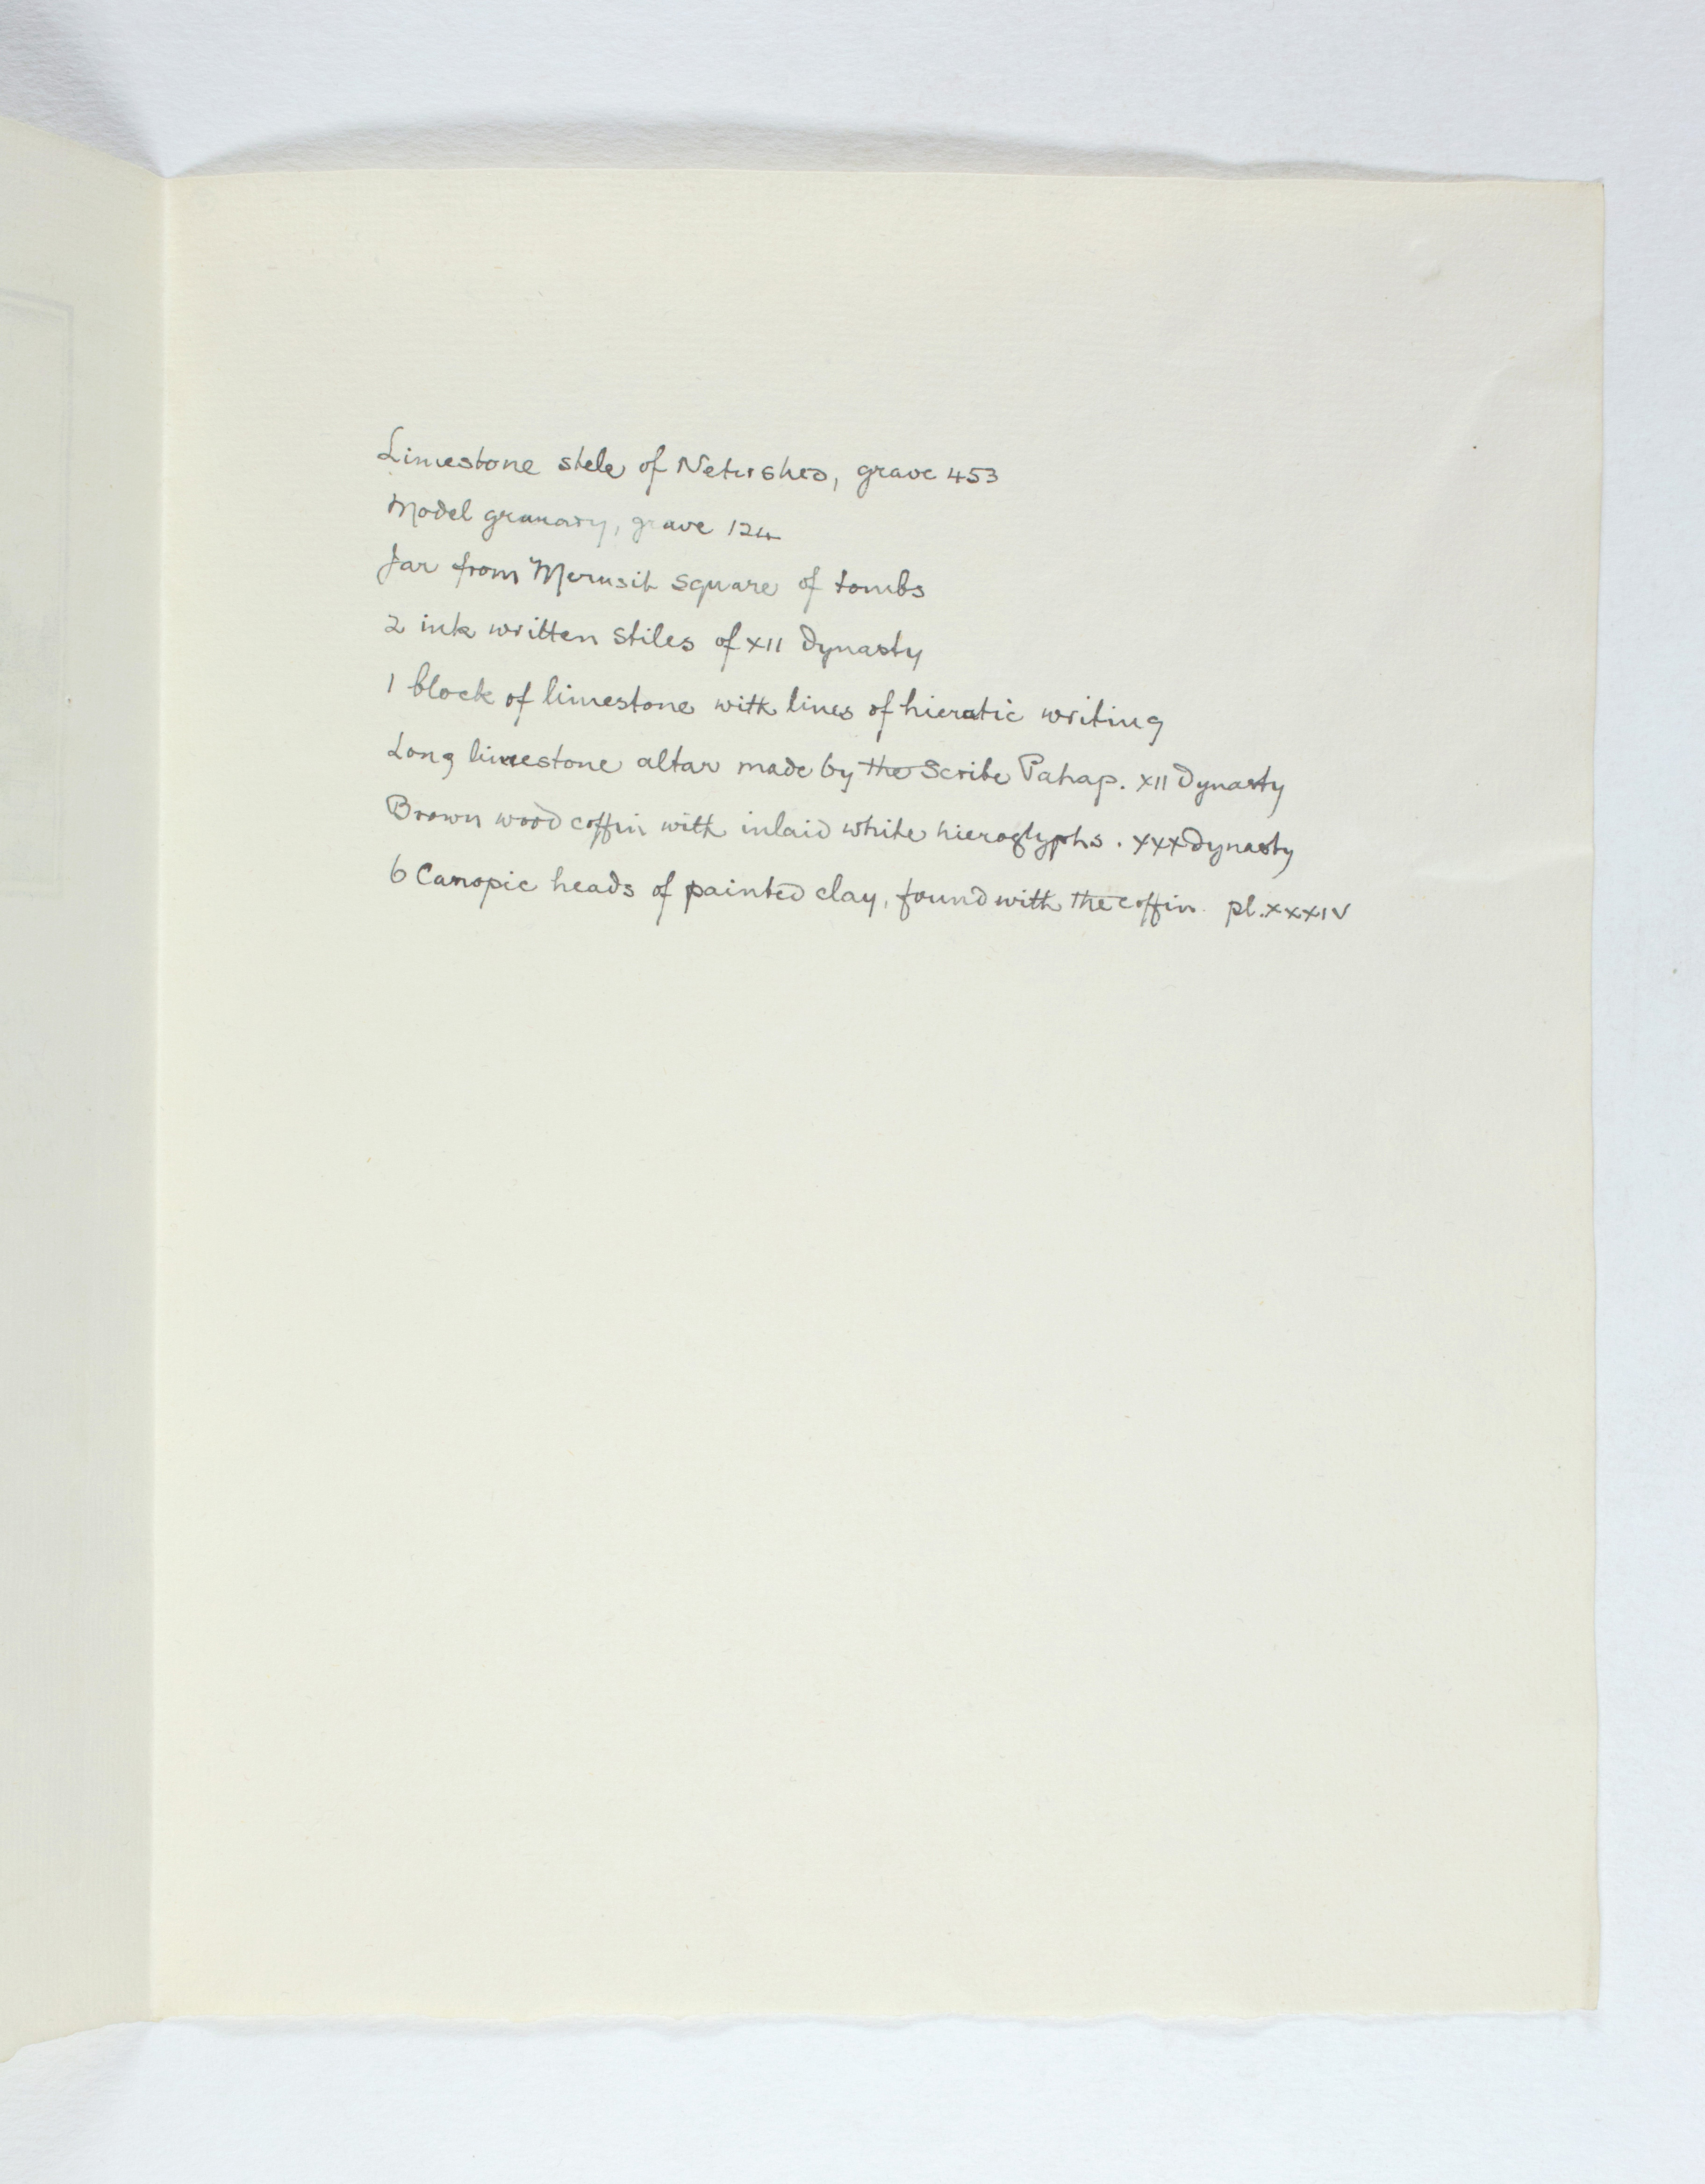 Limestone stele of Netershes, grave 453
Model granary, grave 124
Jar from Merusit square of tombs
2 ink written stiles of XII dynasty
1 block of limestone with lines of hieratic writing
Long limestone altar made by the Scribe Pahap. XII Dynasty
Brown wood coffin with inlaid white hieroglyphs. XXX dynasty
6 Canopic heads of painted clay, found with the coffin. pl. XXXIV